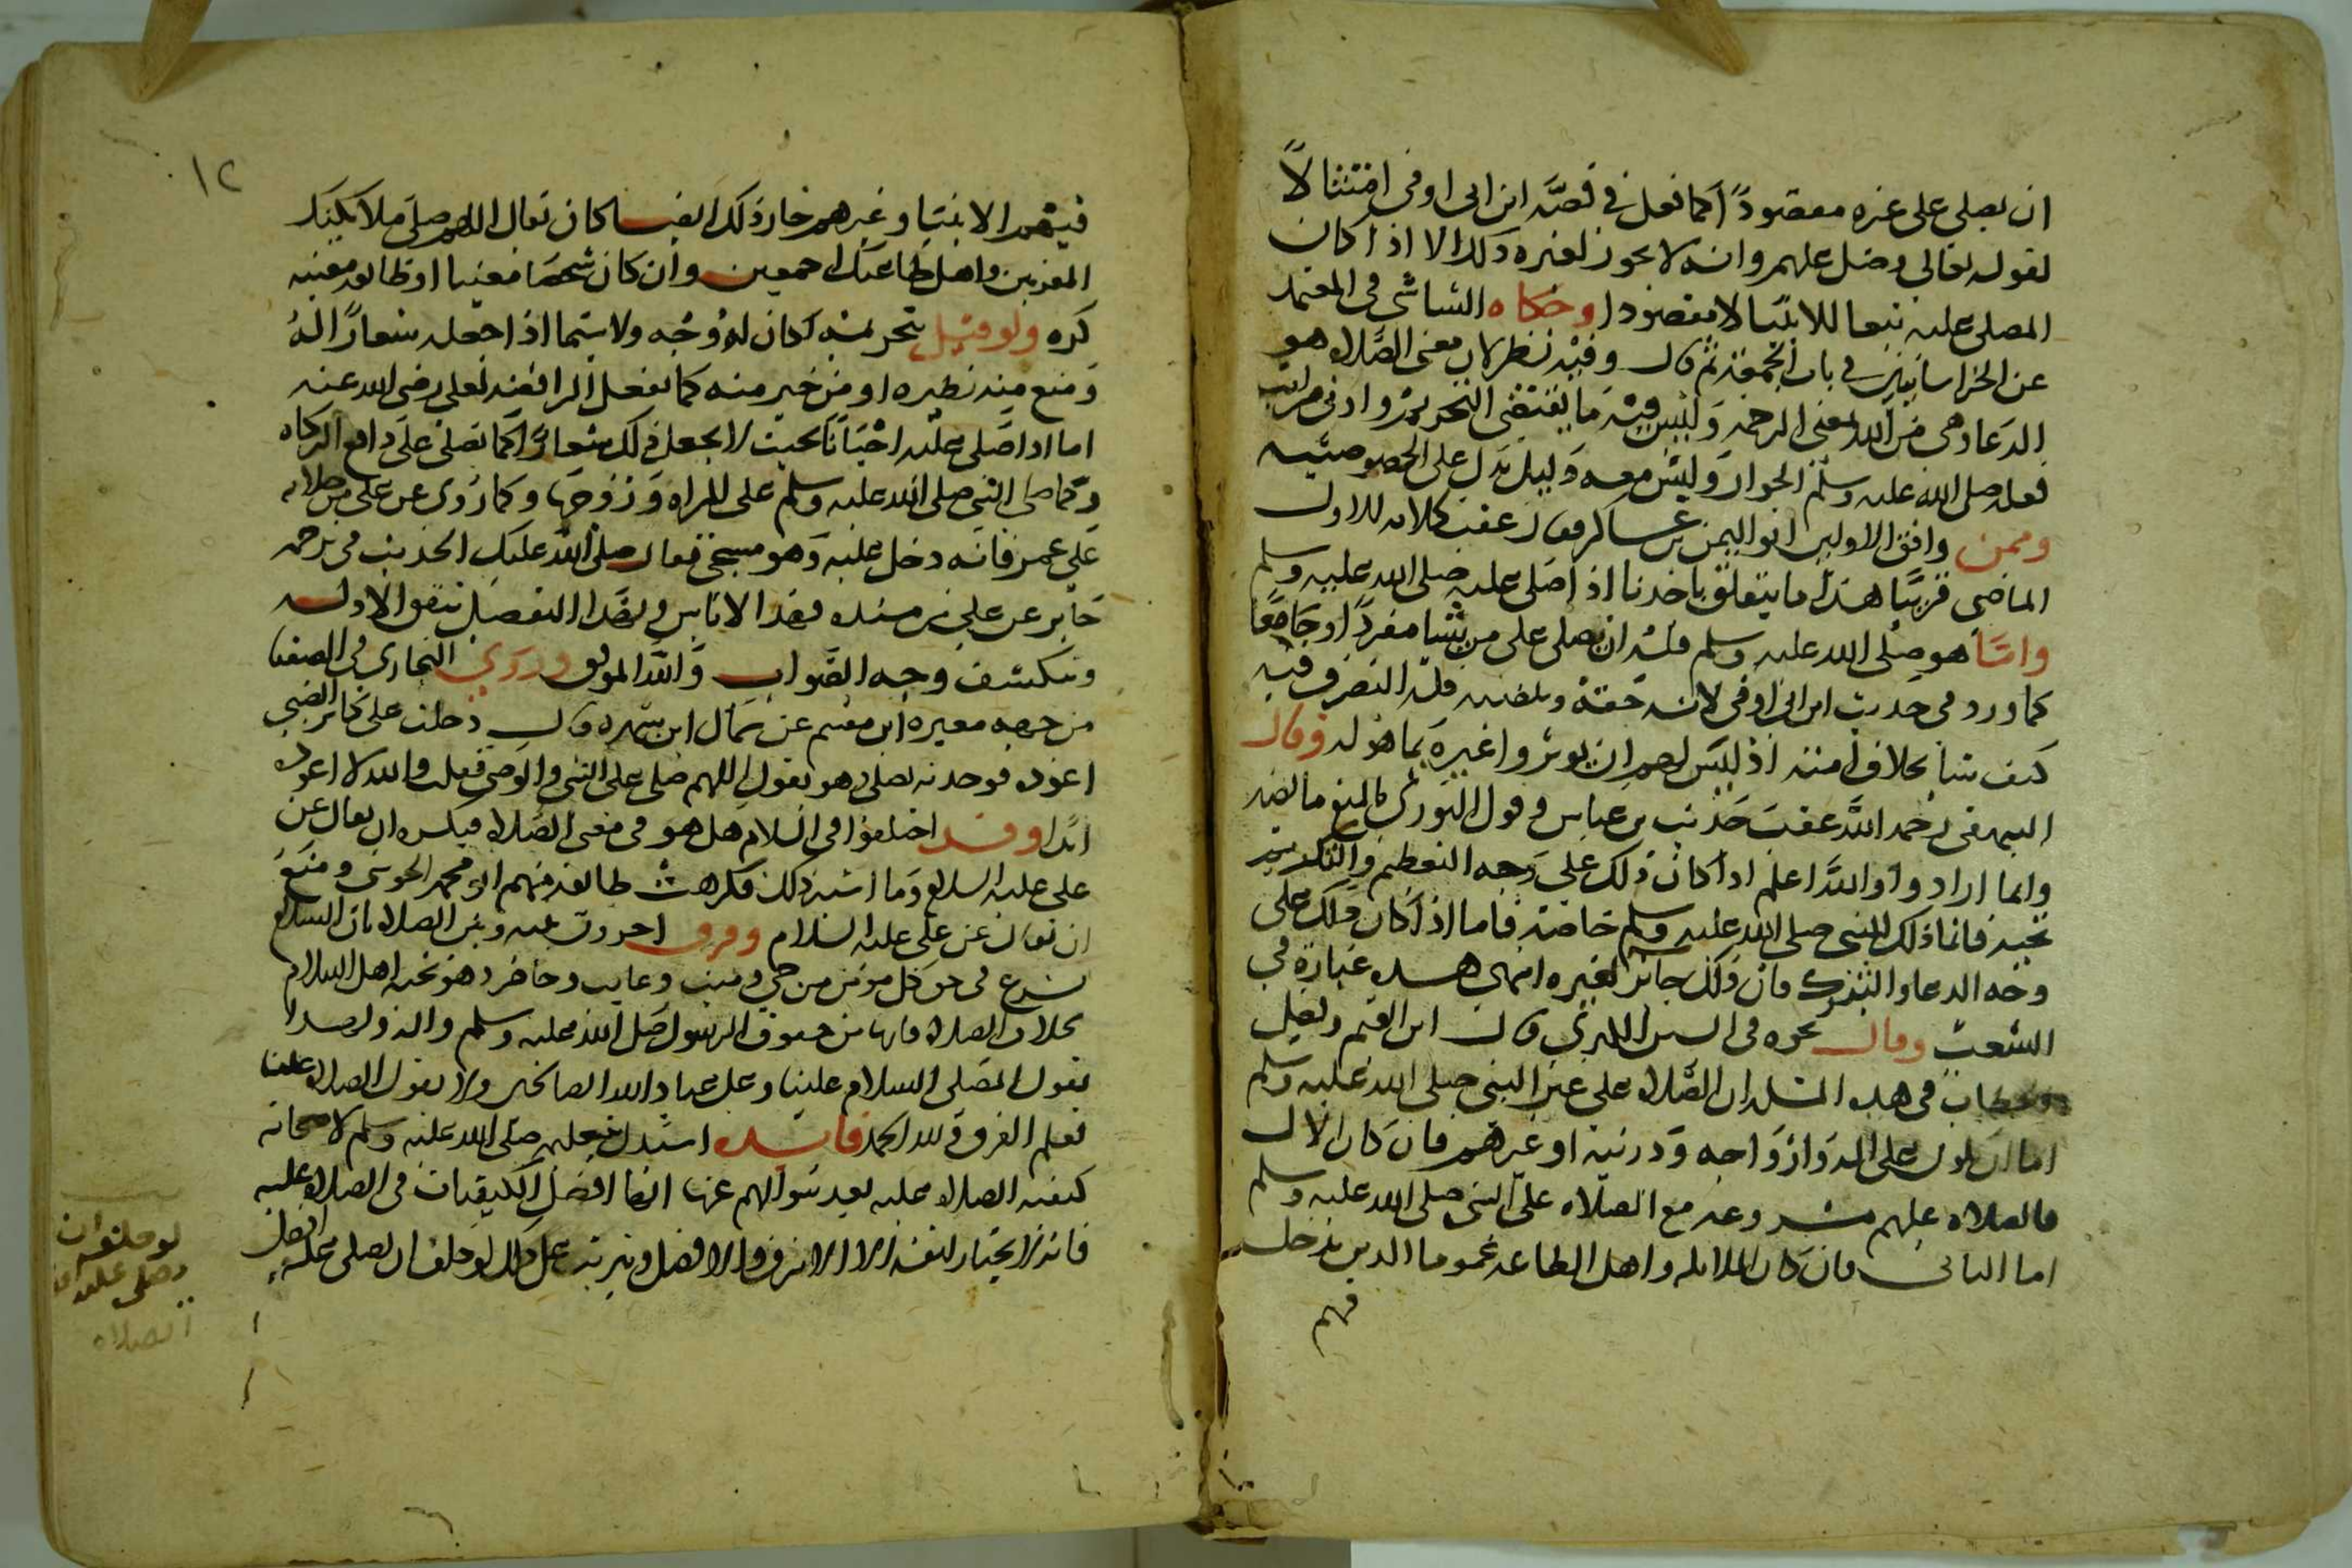 ان يصلى على غيره مقصوداً كما فعل في قصة ابن ابى اوفى امتثالاً
لقوله تعالى وصل عليهم وانه لا يجوز لغيره ذلك الا اذا كان
المصلى عليه تبعا للانبيا لا مقصودا وحكاه الشاشي في المعتمد
عن الخراسانيين في باب الجمعة ثم قال وفيه نظر لان معنى الصلاه هو
الدعا وهى من الله بمعنى الرحمه وليس فيه ما يقتضى التحريم وادنى مراتب
فعله صلى الله عليه وسلم الجواز وليس معه دليل يدل على الخصوصيه
وممن وافق الاولين ابو اليمن بن عساكر فقال عقب كلامه للاول
الماضى قريبا هذا ما يتعلق باحدنا اذا صلى عليه صلى الله عليه وسلم
واما هو صلى الله عليه وسلم فله ان يصلى على من يشا مفرداً او جامعا
كما ورد في حديث ابن ابى اوفى لانه حقه ومنصبه فله التصرف فيه
كيف شا بخلاف امته اذ ليس لهم ان يوثروا غيره بما هو له وقال
البيهقى رحمه الله عقب حديث بن عباس وقول الثورى بالمنع ما نصه
وانما ارادوا والله اعلم اذا كان ذلك على وجه التعظيم والتكريم
تحيه فانما ذلك للنبى صلى الله عليه وسلم خاصة فاما اذا كان ذلك على
وجه الدعا والتبرك فان ذلك جائز لغيره انتهى هذه عبارته في
الشعب وقال نحوه في السنن الكبرى قال ابن القيم وفصل
الخطاب في هذه المسله ان الصلاه على غير النبى صلى الله عليه وسلم
اما ان يكون على اله وازواجه وذريته او غيرهم فان كان الاول
فالصلاه عليهم مشروعه مع الصلاه على النبى صلى الله عليه وسلم
اما الثانى فان كان الملايكه واهل الطاعه عموما الذين يدخل
فيهم
١٢
فيهم الانبيا وغيرهم جاز ذلك ايضا كان يقال اللهم صل على ملايكتك
المقربين واهل طاعتك اجمعين وان كان شخصا معينا او طايفه معينه
كره ولو قيل بتحريمه لكان له وجه ولا سيما اذا جعله شعارا له
ومنع منه نظيره او من خير منه كما تفعل الرافضه بعلى رضى الله عنه
اما اذا صلى عليه احيانا بحيث لا يجعل ذلك شعارا كما تصلى على دافع الزكاه
وكما صلى النبى صلى الله عليه وسلم على المراه وزوجها وكما روى عن على من صلاته
على عمر فانه دخل عليه وهو مسجى فقال صلى الله عليك الحديث في ترجمه
جابر عن على من مسنده فهذا لا باس وبهذا التفصيل تتفق الادله
وينكشف وجه الصواب والله الموفق وروى البخارى في الضعفا
من جهه مغيره ابن مقسم عن شمال ابن شهره قال دخلت على جابر الضبي
اعوده فوجدته يصلى وهو يقول اللهم صلى على النبى والوصى فقلت والله لا اعوده
ابدا وقد اختلفوا في السلام هل هو في معنى الصلاه فيكره ان يقال عن
على عليه السلام وما اشبه ذلك فكرهت طايفه منهم ابو محمد الجوينى ومنع
ان يقال عن على عليه السلام وفرق اخرون بينه وبين الصلاه بان السلام
يشرع في حق كل مومن من حي وميت وغايب وحاضر وهو تحيه اهل الاسلام
بخلاف الصلاه فانها من حقوق الرسول صلى الله عليه وسلم واله ولهذا
يقول المصلى السلام علينا وعلى عباد الله الصالحين ولا يقول الصلاه علينا
فعلم الفرق ولله الحمد فائده استدل بتعليمه صلى الله عليه وسلم لاصحابه
كيفيه الصلاه عليه بعد سوالهم عنها انها افضل الكيفيات في الصلاه عليه
فانه لا يختار لنفسه الا الاشرف والافضل ويترتب على ذلك لو حلف ان يصلى عليه افضل
لو حلف ان
يصلى عليه افضل
الصلاه